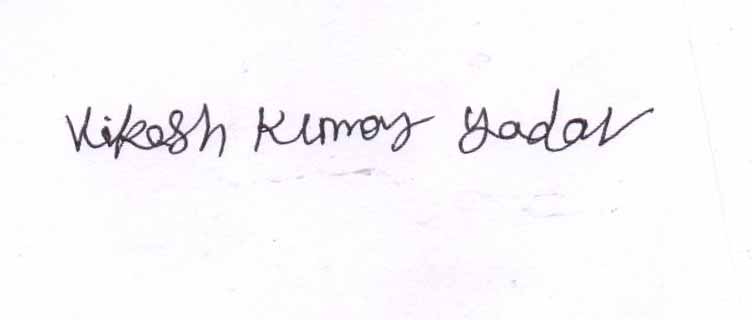 Vikash Kumar Yadav